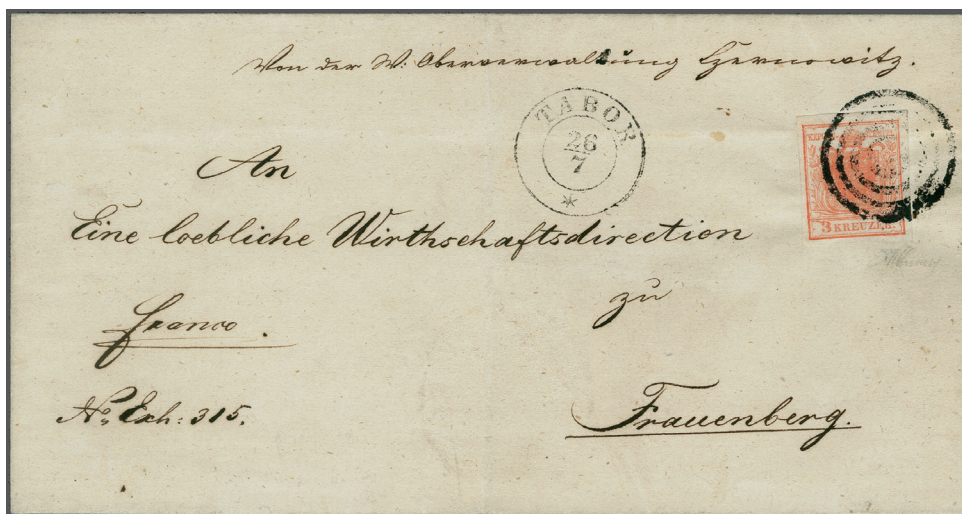 Von der W: Oberverwaltung Czernowitz.
TABOR
26
7
An
Eine loebliche Wirthschaftsdirection
3 KREUZER.
zu
franco.
No. Exh: 315.
Frauenberg.